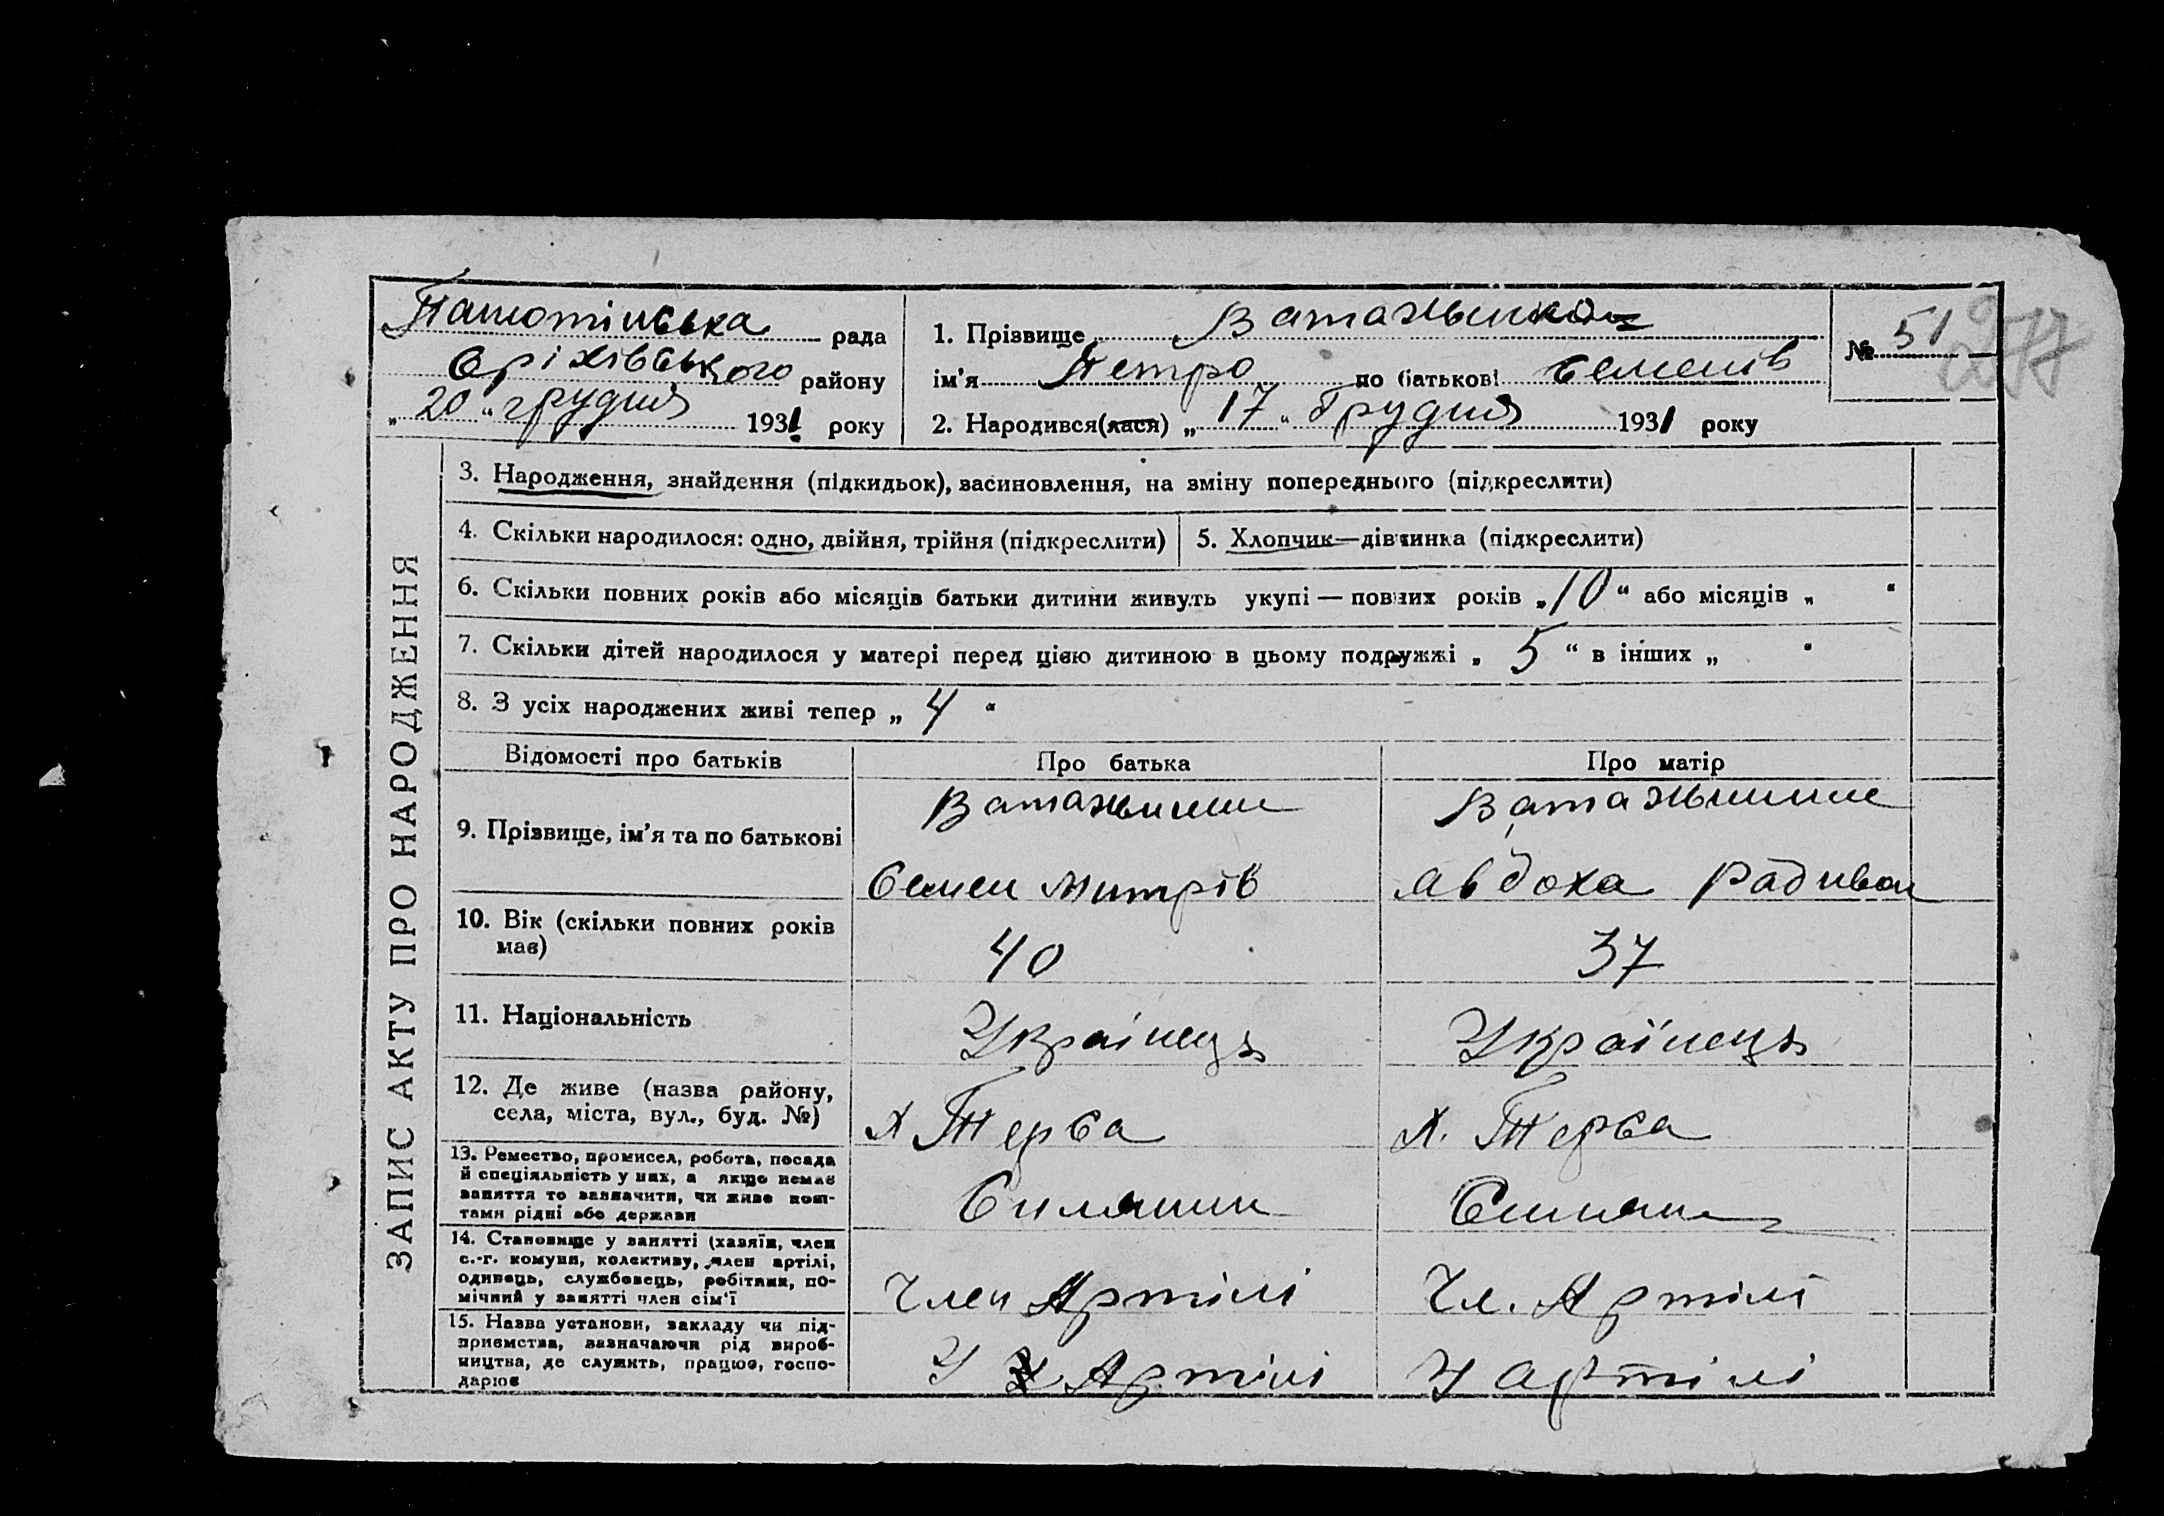 Пашотінська рада
Оріхівського району
„ 20 “ грудня 1931 року
1. Прізвище
ім’я Петро по батькові Семенів
2. Народився(лася) „ 17 “ Грудня 1931 року
№ 51
277
ЗАПИС АКТУ ПРО НАРОДЖЕННЯ
3. Народження, знайдення (підкидьок), засиновлення, на зміну попереднього (підкреслити)
4. Скільки народилося: одно, двійня, трійня (підкреслити)
5. Хлопчик—дівчинка (підкреслити)
6. Скільки повних років або місяців батьки дитини живуть укупі — повних років „ 10 “ або місяців „ “
7. Скільки дітей народилося у матері перед цією дитиною в цьому подружжі „ 5 “ в інших „ “
8. З усіх народжених живі тепер „ 4 “
Відомості про батьків Про батька Про матір
9. Прізвище, ім’я та по батькові
Семен Митрів Явдоха Радивон
10. Вік (скільки повних років має) 40 37
11. Національність Українець Українець
12. Де живе (назва району,
села, міста, вул., буд. №) х Терса х. Терса
13. Ремество, промисел, робота, посада
й спеціяльність у них, а якщо немає
заняття то зазначити, чи живе кош-
тами рідні або держави
14. Становище у занятті (хазяїн, член
с.-г. комуни, колективу, член артілі,
одинець, службовець, робітник, по-
мічний у занятті член сім’ї
Член Артілі Чл. Артілі
15. Назва установи, закладу чи під-
приємства, зазначаючи рід вироб-
ництва, де служить, працює, госпо-
дарює
У Артілі У артілі